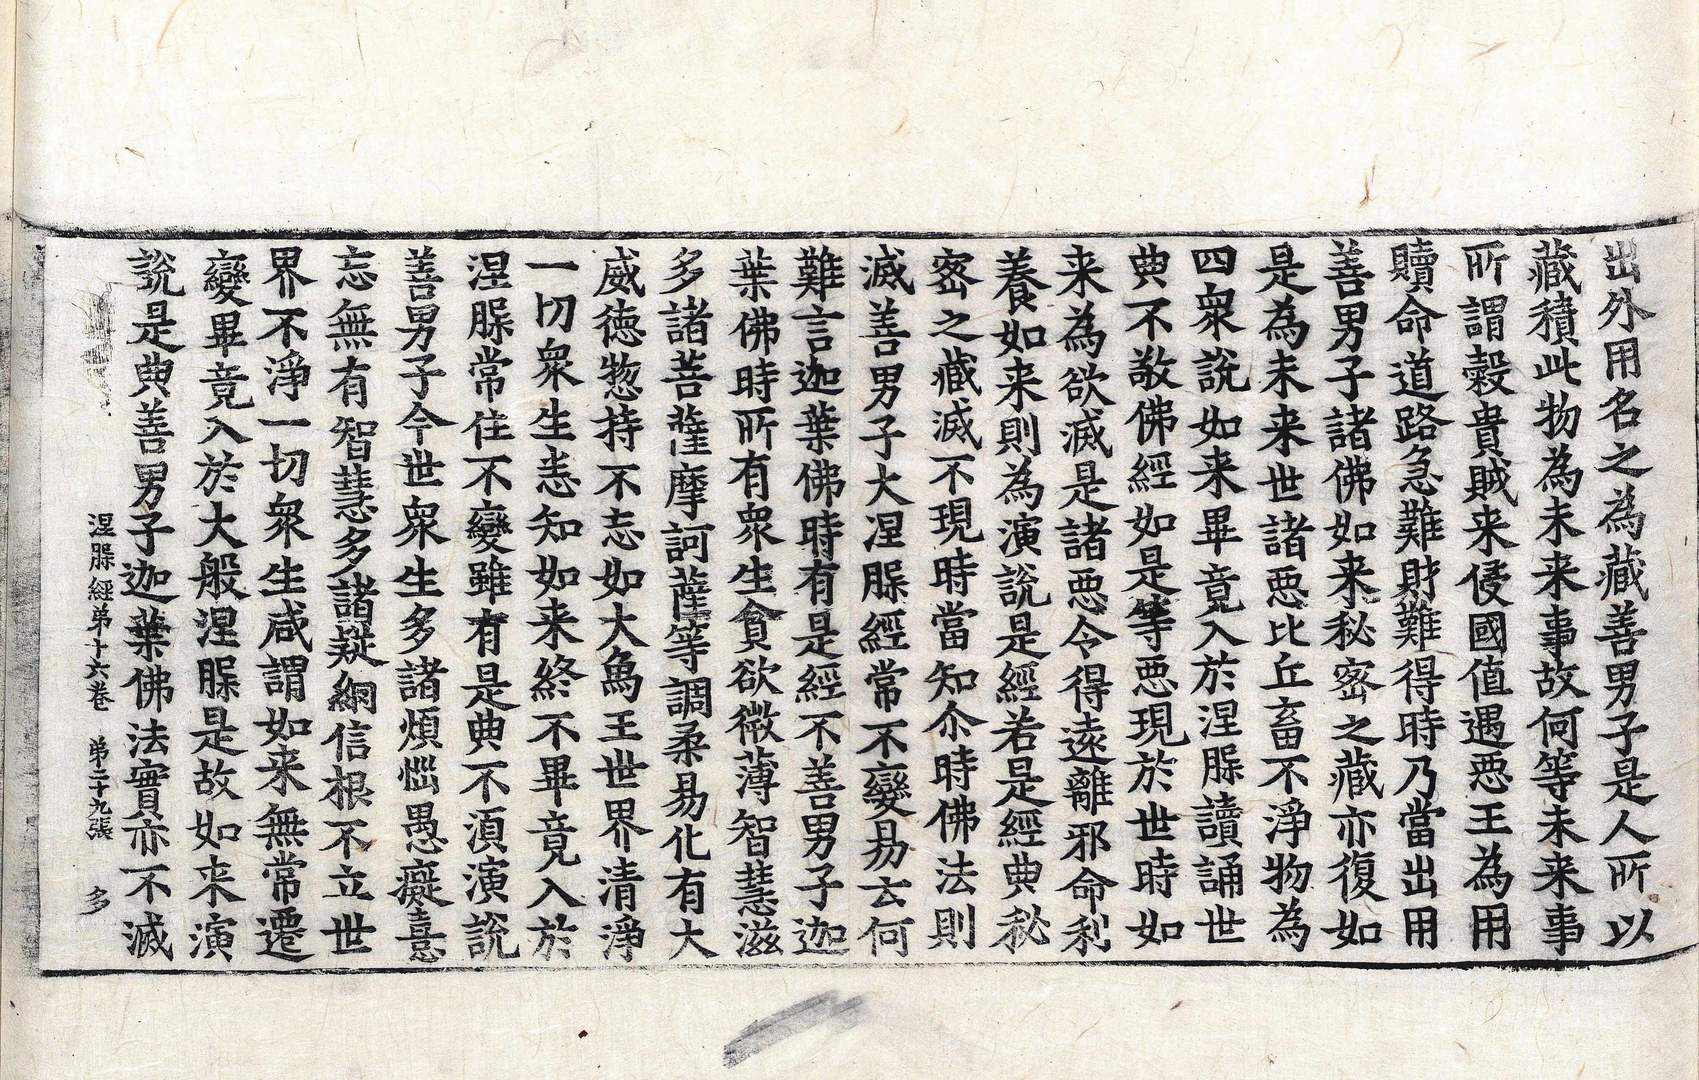 出外用名之為藏善男子是人所以
藏積此物為未来事故何等未来事
所謂穀貴賊来侵國值遇恶王為用
贖命道路急難財難得時乃當出用
善男子諸佛如来秘密之藏亦復如
是為未来世諸恶比丘畜不淨物為
四衆說如来畢竟入於涅脲讀誦世
典不敬佛經如是等恶現於世時如
来為欲滅是諸恶令得遠離邪命利
養如来則為演說是經若是經典秘
密之藏滅不現時當知尒時佛法則
滅善男子大涅脲經常不變易云何
難言迦葉佛時有是經不善男子迦
葉佛時所有衆生貪欲微薄智慧滋
多諸菩薩摩訶薩等調柔易化有大
威德惣持不忘如大鳥王世界清淨
一切衆生恚知如来終不畢竟入於
涅脲常住不變雖有是典不湏演說
善男子今世衆生多諸煩惱愚癡憙
忘無有智慧多諸疑網信根不立世
界不淨一切衆生咸謂如来無常遷
變畢竟入於大般涅脲是故如来演
說是典善男子迦葉佛法實亦不滅
涅脲經苐十六卷 苐二十九張 多